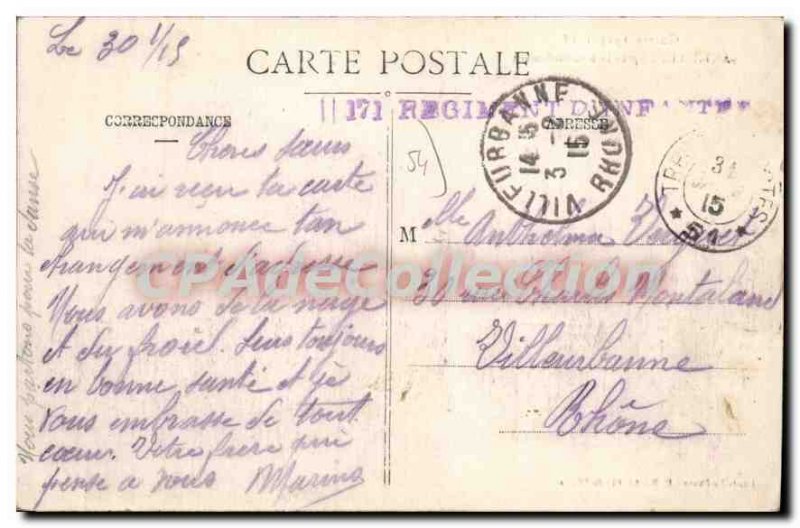 Le 30 1/15
CARTE POSTALE
171 REGIMENT D'INFANTERIE
CORRESPONDANCE
ADRESSE
VILLEURBANNE RHONE
14 15
3 - 2
15
TRESOR ET POSTES
31
15
* 54 *
54
Chères sœurs
J'ai reçu ta carte
qui m'annonce tan
changement d'adresse
Vous avons de la neige
et du froid. Suis toujours
en bonne santé et je
vous embrasse de tout
cœur. Votre frère qui
pense à vous Marius
Vous partons pour la danse
M elle
30 rue Charles Montaland
Villeurbanne
Rhône
CPAdeCollection